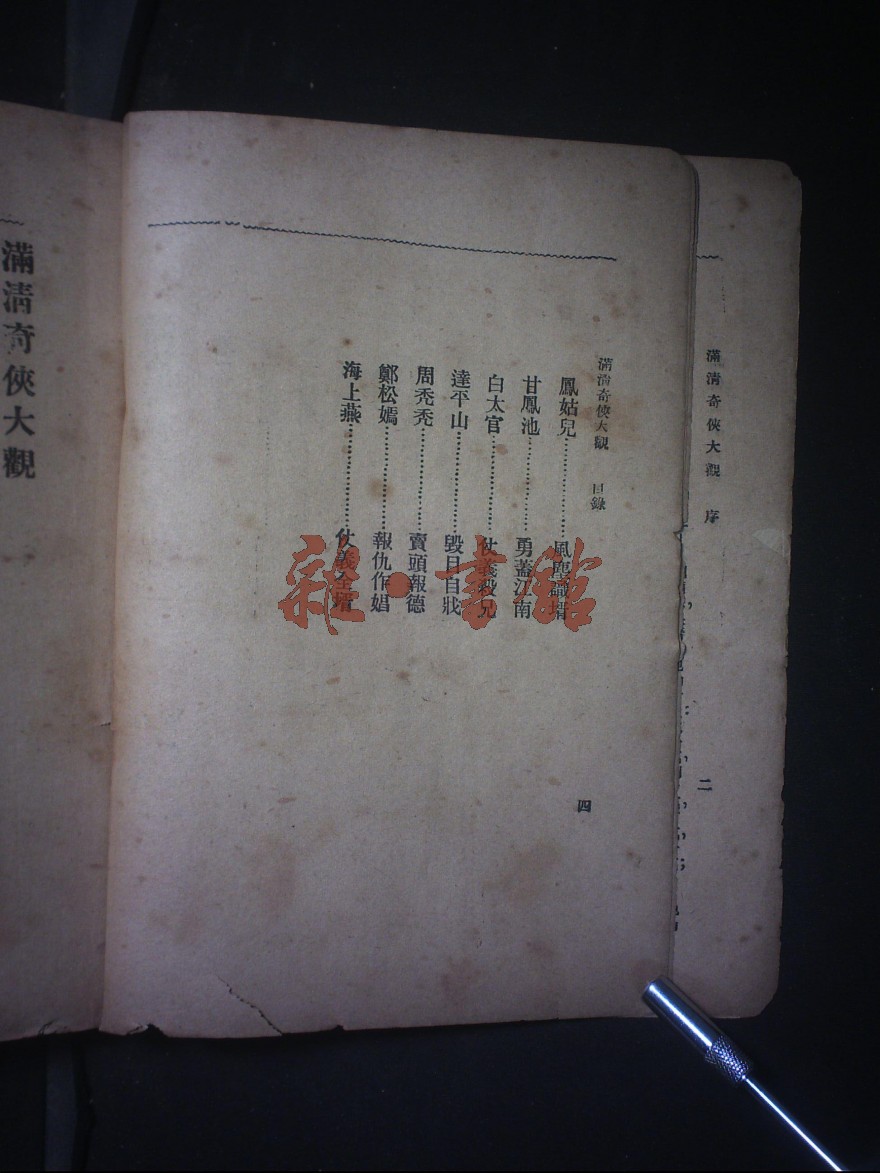 滿清奇俠大觀 序
二
滿清奇俠大觀 目錄
鳳姑兒……………風塵識壻
甘鳳池……………勇蓋江南
白太官……………仗義殺兄
達平山……………毀目自戕
周禿禿……………賣頭報德
鄭松嫣……………報仇作娼
海上燕……………仗義全壻
四
滿清奇俠大觀
雜·書館